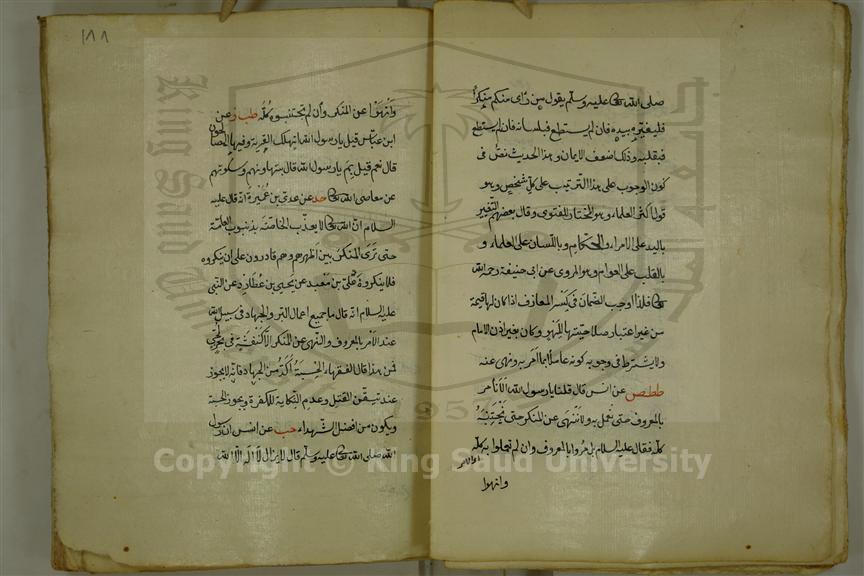 صلى الله تعالى عليه وسلم يقول من رأى منكم منكرا
فليغيره بيده فان لم يستطع فبلسانه فان لم يستطع
فبقلبه وذلك اضعف الايمان وهذا الحديث نص في
كون الوجوب على هذا الترتيب على كل شخص وهو
قول اكثر العلماء وهو المختار للفتوى وقال بعضهم التغيير
باليد على الامراء والحكام وباللسان على العلماء و
بالقلب على العوام وهو المروى عن ابى حنيفة رحمه الله
تعالى فلذا اوجب الضمان في كسر المعازف اذا كان لها قيمة
من غير اعتبار صلاحيتها للهو وكان بغير اذن الامام
ولا يشترط في وجوبه كونه عاملا بما امر به ونهى عنه
ططص عن انس قال قلنا يا رسول الله الا نأمر
بالمعروف حتى نعمل به ولا ننهى عن المنكر حتى نجتنبه
كله فقال عليه السلام بل مروا بالمعروف وان لم تعملوا به كله
وانهوا
١٨٨
وانهوا عن المنكر وان لم تجتنبوه كله طب ز عن
ابن عباس قيل يا رسول الله اتهلك القرية وفيها الصالحون
قال نعم قيل بم يا رسول الله قال بتهاونهم وسكوتهم
عن معاصى الله تعالى حد عن عدى بن عميرة انه قال عليه
السلام ان الله تعالى لا يعذب الخاصة بذنوب العامة
حتى ترى المنكر بين اظهرهم وهم قادرون على ان ينكروه
فلا ينكروه على بن معبد عن يحيى بن عطارد عن النبى
عليه السلام انه قال ما جميع اعمال البر والجهاد في سبيل الله
عند الامر بالمعروف والنهى عن المنكر الا كنفثة في بحر لجى
فمن هذا قال الفقهاء الحسبة آكد من الجهاد فانه لا يجوز
عند تيقن القتل وعدم النكاية للكفرة ويجوز الحسبة
ويكون من افضل الشهداء حب عن انس ان رسول
الله صلى الله تعالى عليه وسلم قال لا يزال لا اله الا الله
Copyright © King Saud University
King Saud University
جامعة الملك سعود
1957